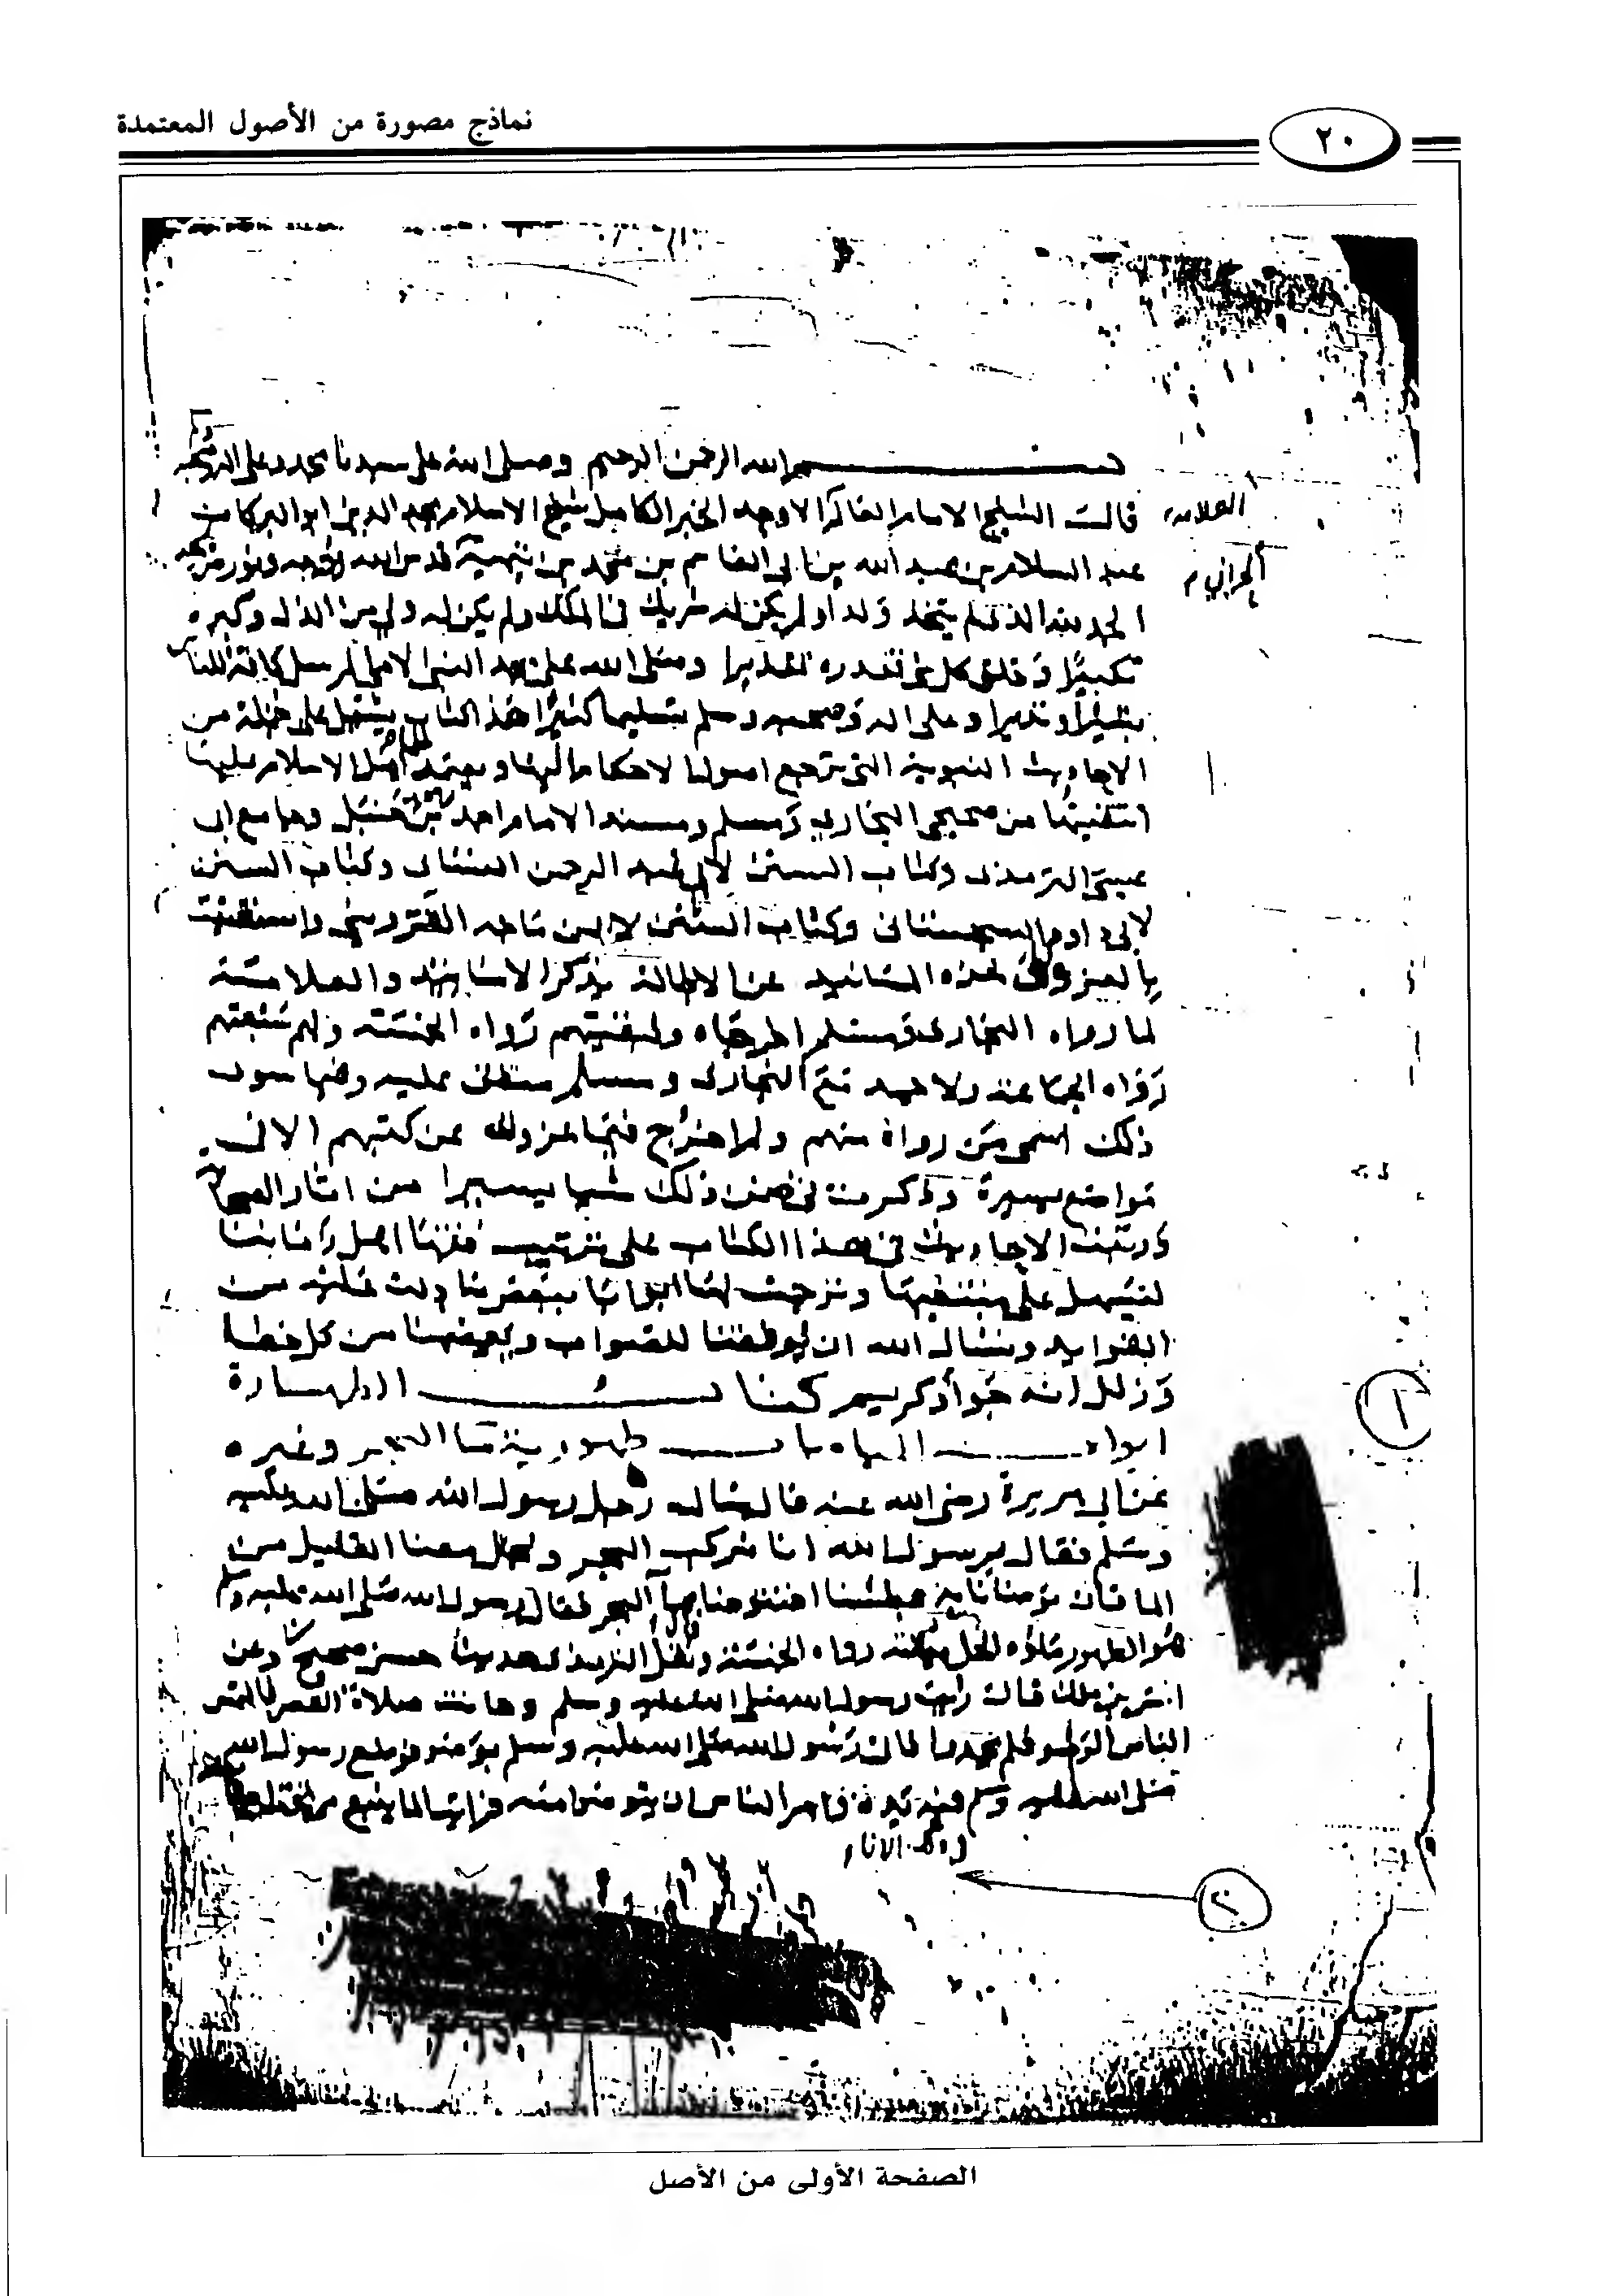 نماذج مصورة من الأصول المعتمدة
٢٠
بسم الله الرحمن الرحيم وصلى الله على سيدنا محمد وعلى اله وصحبه
قال الشيخ الامام العالم الاوحد الحبر الكامل شيخ الاسلام مجد الدين ابو البركات
العلامه
عبد السلام بن عبد الله بن ابى القاسم بن محمد بن تيمية قدس الله روحه ونور ضريحه
الحراني
الحمد لله الذى لم يتخذ ولدا ولم يكن له شريك فى الملك ولم يكن له ولي من الذل وكبره
تكبيرا وخلق كل شى فقدره تقديرا وصلى الله على محمد النبى الامى المرسل كافة للناس
بشيرا ونذيرا وعلى اله وصحبه وسلم تسليما كثيرا هذا كتاب يشتمل على جملة من
الاحاديث النبوية التى ترجع اصول الاحكام اليها ويعتمد اهل الاسلام عليها
انتقيتها من صحيحى البخارى ومسلم ومسند الامام احمد بن حنبل وجامع ابى
عيسى الترمذى وكتاب السنن لابى عبد الرحمن النسائى وكتاب السنن
لابى داود السجستانى وكتاب السنن لابن ماجه القزوينى واستغنيت
بالعزو الى هذه المسانيد عن الاطالة بذكر الاسانيد والعلامة
لما رواه البخارى ومسلم اخرجاه ولبقيتهم رواه الخمسة ولهم سبعتهم
رواه الجماعة ولاحمد مع البخارى ومسلم متفق عليه وفيما سوى
ذلك اسمى من رواه منهم ولم اخرج فيما عزوته عن كتبهم الا فى
مواضع يسيرة وذكرت فى ضمن ذلك شيا يسيرا من اثار الصحابة
ورتبت الاحاديث فى هذا الكتاب على ترتيب فقها اهل زماننا
لتسهل على مبتغيها وترجمت لها ابوابا ببعض ما دلت عليه من
الفوايد ونسال الله ان يوفقنا للصواب ويعصمنا من كل خطا
وزلل انه جواد كريم كتاب الطهارة
ابواب المياه باب طهورية ما البحر وغيره
عن ابى هريرة رضى الله عنه قال سال رجل رسول الله صلى الله عليه
وسلم فقال يرسول الله انا نركب البحر ونحمل معنا القليل من
الما فان توضانا به عطشنا افنتوضا بماء البحر فقال رسول الله صلى الله عليه وسلم
هو الطهور ماؤه الحل ميتته رواه الخمسة وقال الترمذى حديث حسن صحيح وعن
انس بن ملك قال رايت رسول الله صلى الله عليه وسلم وحانت صلاة العصر فالتمس
الناس الوضو فلم يجدوا فاتى رسول الله صلى الله عليه وسلم بوضو فوضع رسول الله
صلى الله عليه وسلم فيه يده فامر الناس ان يتوضوا منه فرايت الما ينبع من تحت
الاناء
١
٢
الصفحة الأولى من الأصل